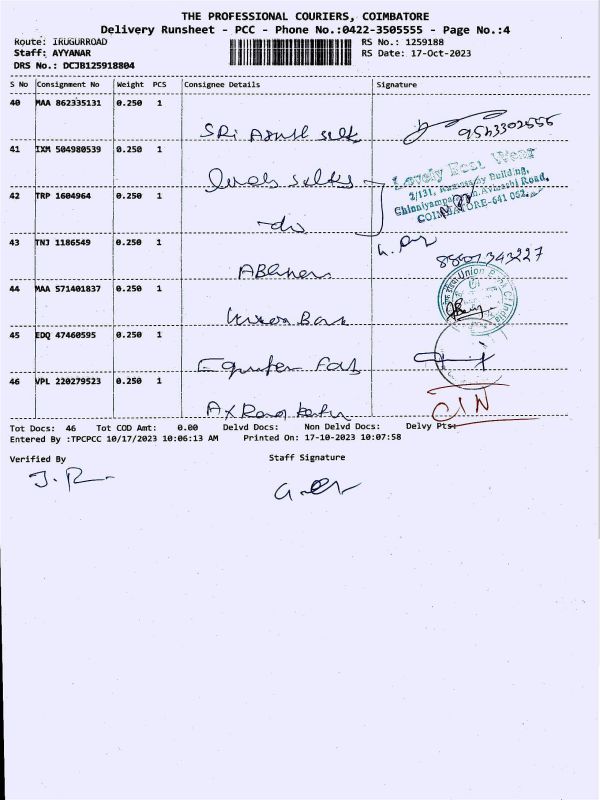 THE PROFESSIONAL COURIERS, COIMBATORE
Delivery Runsheet - PCC - Phone No.:0422-3505555 - Page No.:4
Route: IRUGURROAD RS No.: 1259188
Staff: AYYANAR RS Date: 17-Oct-2023
DRS No.: DCJB125918804
S No Consignment No Weight PCS Consignee Details Signature
40 MAA 862335131 0.250 1
SRi silk
41 IXM 504980539 0.250 1
Lovely East Wear
2/131, Building,
Road,
COIMBATORE-641 062.
42 TRP 1604964 0.250 1
-do
43 TNJ 1186549 0.250 1
8807343227
44 MAA 571401837 0.250 1
Union Bank Of India
Union Bank
45 EDQ 47460595 0.250 1
46 VPL 220279523 0.250 1
C/N
Tot Docs: 46 Tot COD Amt: 0.00 Delvd Docs: Non Delvd Docs: Delvy Pts:
Entered By :TPCPCC 10/17/2023 10:06:13 AM Printed On: 17-10-2023 10:07:58
Verified By Staff Signature